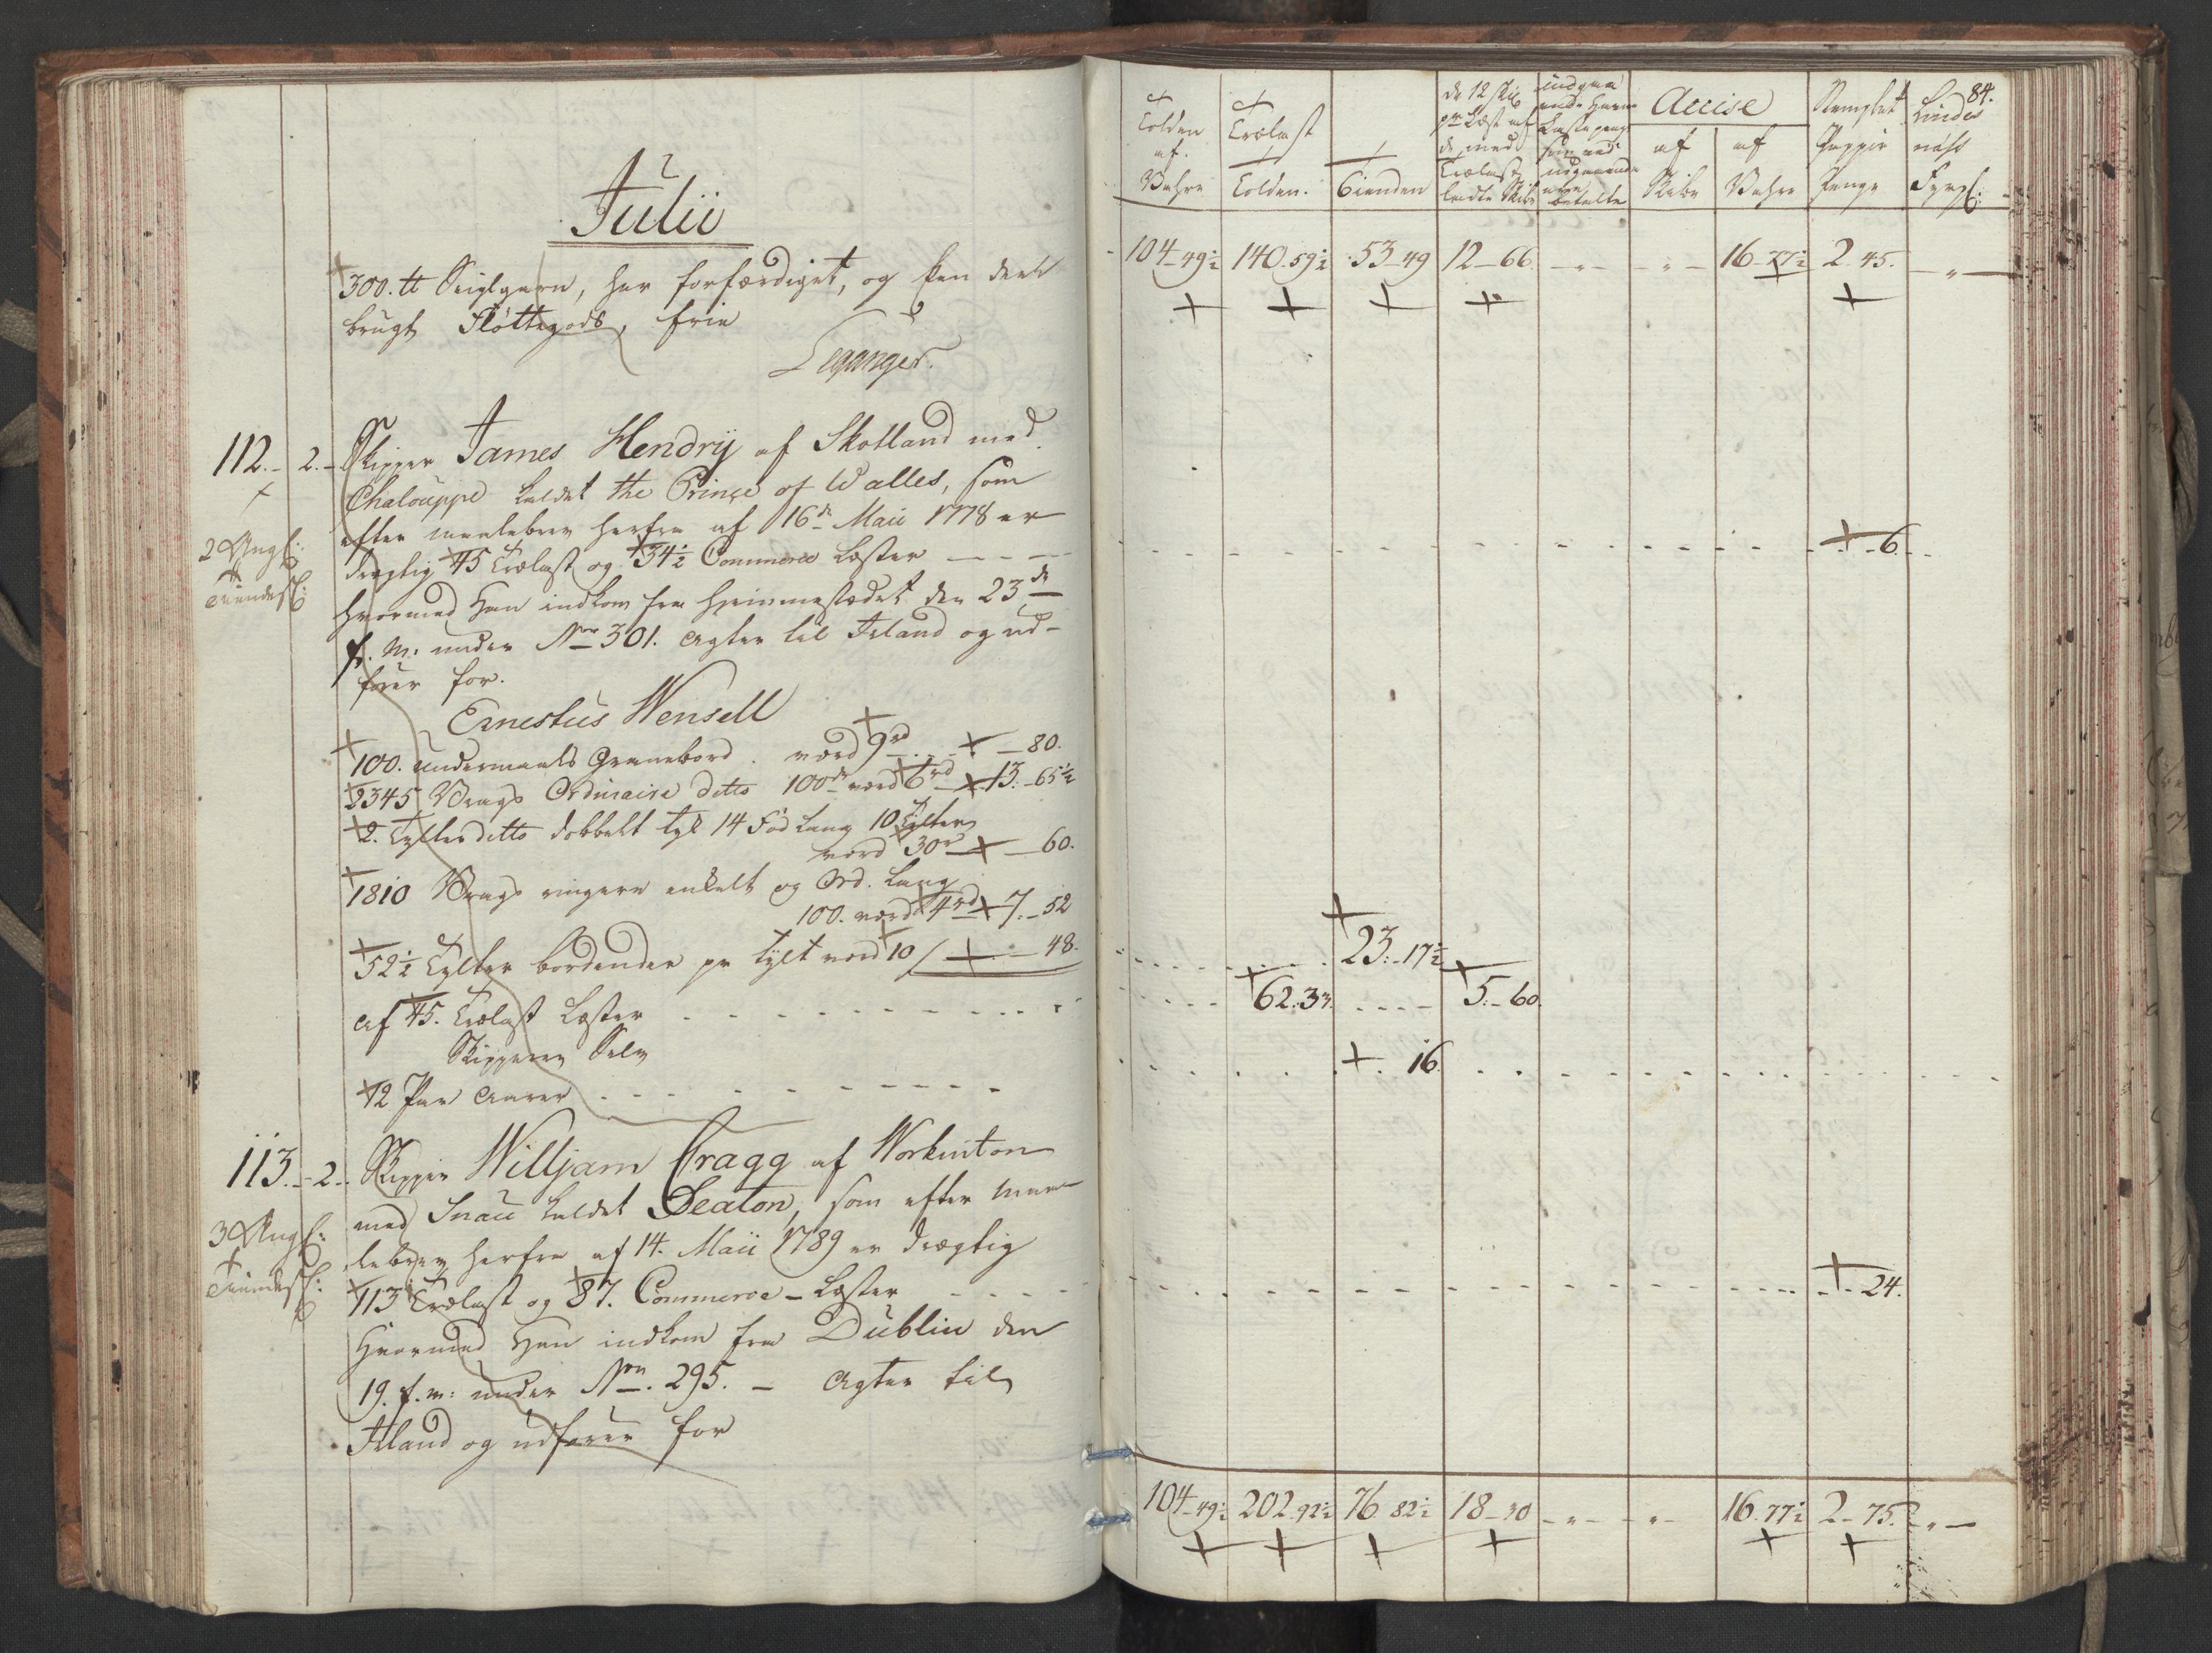 Julii
300. tt Seiglgarn, her forfærdiget, og een deel
brugt Fløttegods, frie
Leganger.
112. 2. Skipper James Hendrÿ af Skotland med
Chalouppe kaldet the Prince of Walles, som
2 Angl:
efter maalebrev herfra af 16de Maii 1778 er
drægtig 45 Trælast og 34½ Commerce Læster
Tiendes:
hvormed Han indkom fra Hjemmestædet den 23de
f. M. under No 301. Agter til Irland og ud-
fører for.
Ernestus Wensell
100. undermaals Granebord. værd 9rd - 80.
2345 Vrags Ordinaire ditto 100de værd 6rd 13.-65½
2. Tylter ditto dobbelt tyk 14 Fod lang 10 Tylter
værd 30r - 60.
1810 Vrags ringere enkelt og Ord. Lang
100. værd 4rd 7.-52
52½ Tylter bordender pr tylt værd 10 / - 48.
af 45. Trælast Læster
Skipperen Selv
12 Par Aarer
113.-2. Skipper Willjam Cragg af Workinton
med Snau kaldet Seaton, som efter maa-
3 Angl:
lebrev herfra af 14. Maii 1789 er drægtig
Tiendes:
113 Trælast og 87. Commerce-Læster
Hvormed Han indkom fra Dublin den
19. f. m: under No. 295. - Agter til
Irland og udfører for
84.
Tolden af. Vahre
Trælast Tolden.
Tienden
de 12 skil pr Læst af de med Trælast ladte Skibe
indgaaende Havne Laste penge som ved udgaaende betalte
Accise
af Skibe
af Vahre
Stemplet Papir Penge
Lindesnæss Fyrp:
104-49½ 140.59½ 53-49 12-66 16-77½ 2-45.
6.
23.-17½
62.33. 5.-60.
16.
24.
104-49½ 202.92½ 76.82½ 18-30 16.77½ 2-75.